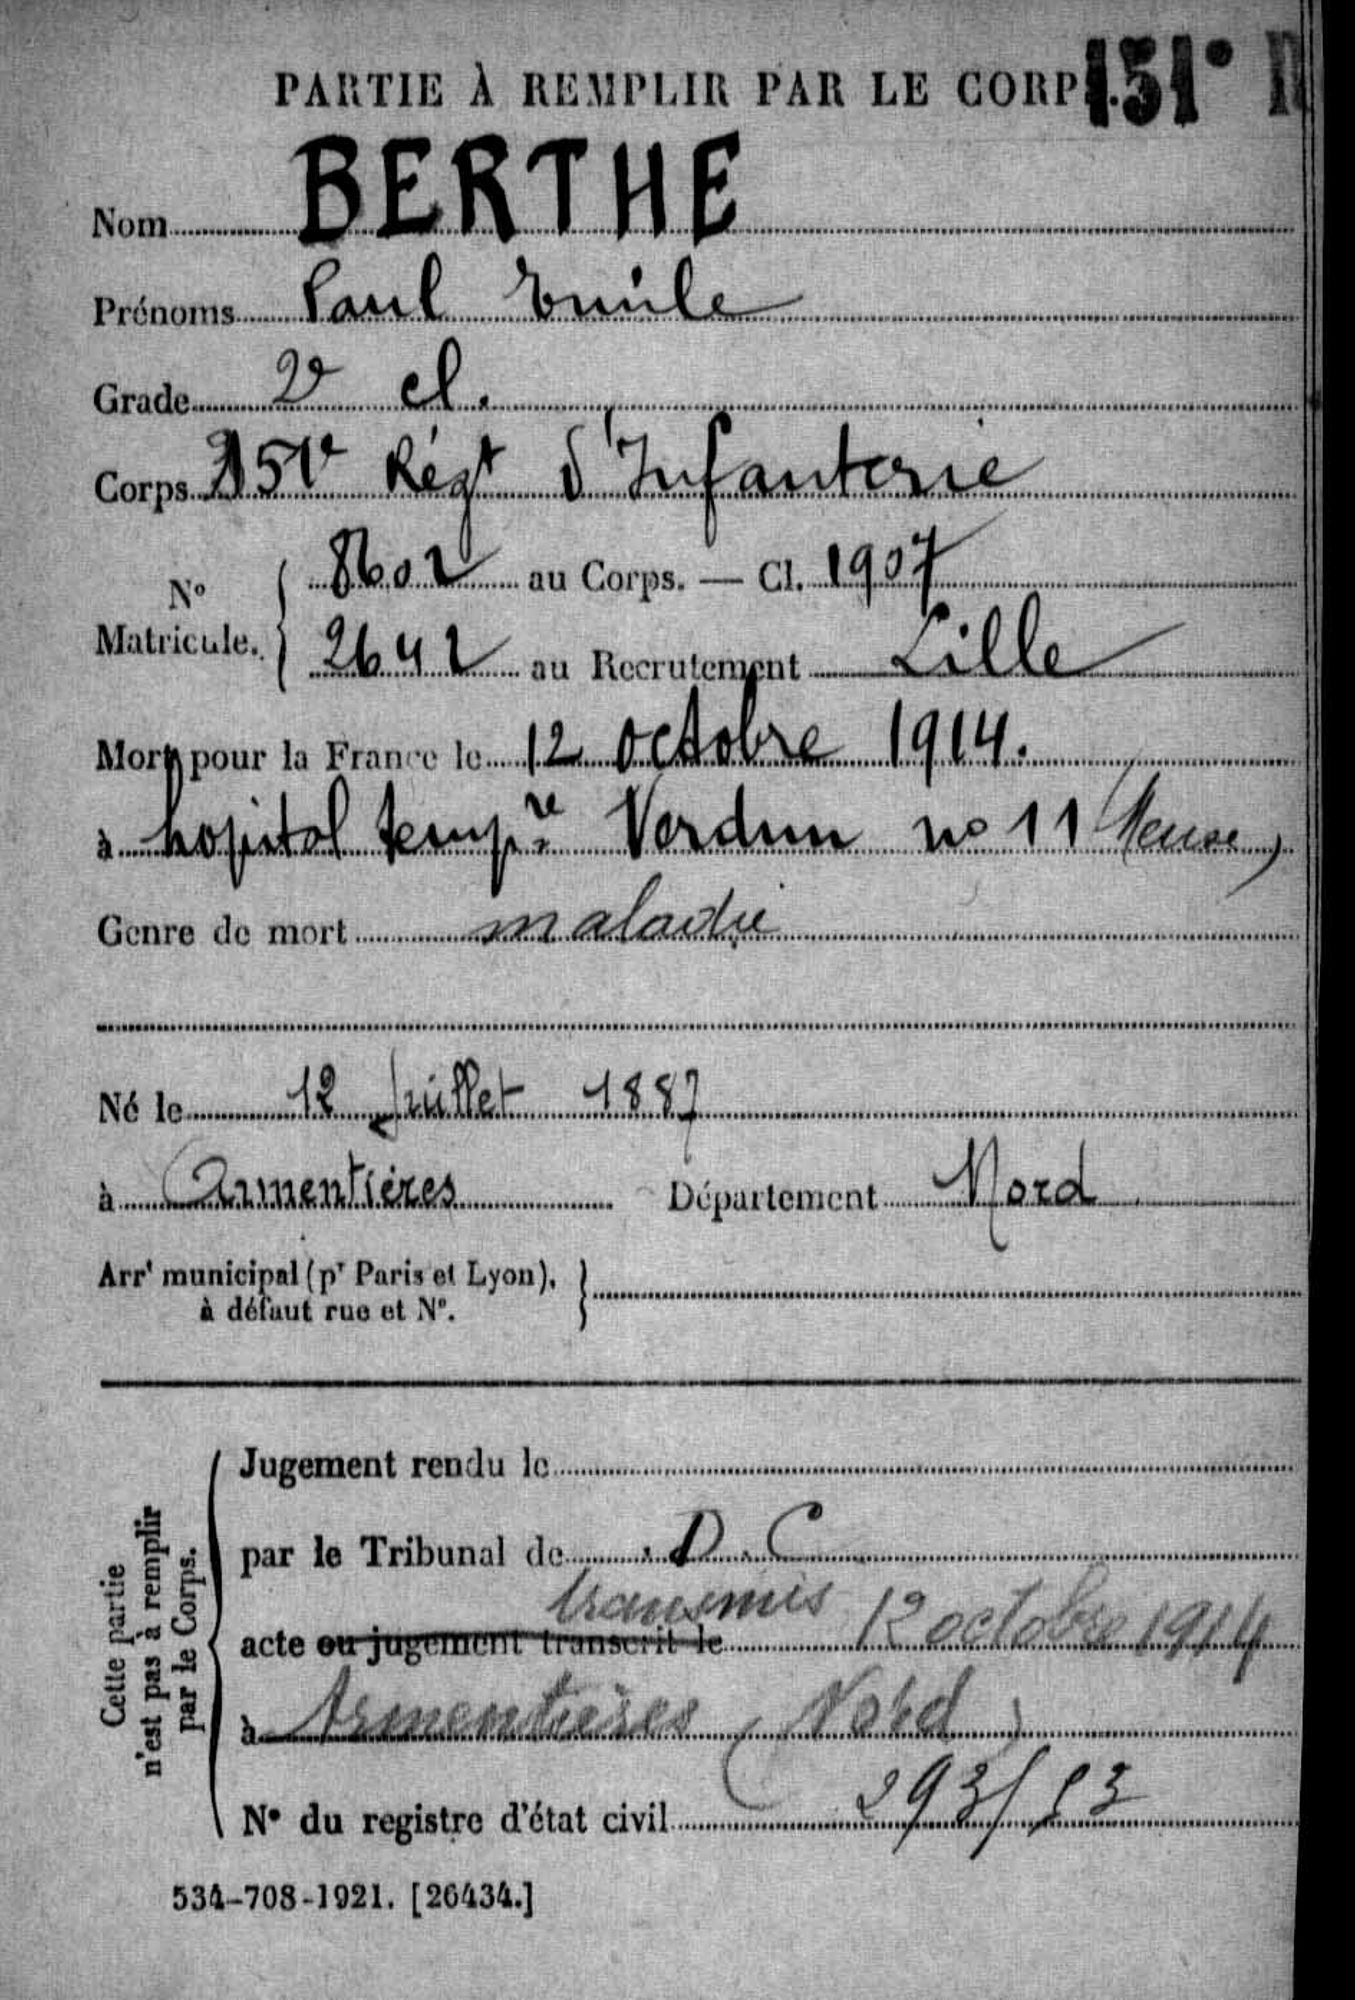 PARTIE À REMPLIR PAR LE CORPS. 151e R
Nom BERTHE
Prénoms Paul Emile
Grade 2e cl.
Corps 151e Régt d'Infanterie
No Matricule. { 8602 au Corps. — Cl. 1907
2642 au Recrutement Lille
Mort pour la France le 12 octobre 1914.
à hopital tempre Verdun no 11 (Meuse)
Genre de mort maladie
Né le 12 Juillet 1887
à Armentières Département Nord
Arrt municipal (pr Paris et Lyon), à défaut rue et No. }
Cette partie n'est pas à remplir par le Corps.
Jugement rendu le
par le Tribunal de D. C
transmis
acte ou jugement transcrit le 12 octobre 1914
à Armentières (Nord)
No du registre d'état civil 293/
534-708-1921. [26434.]